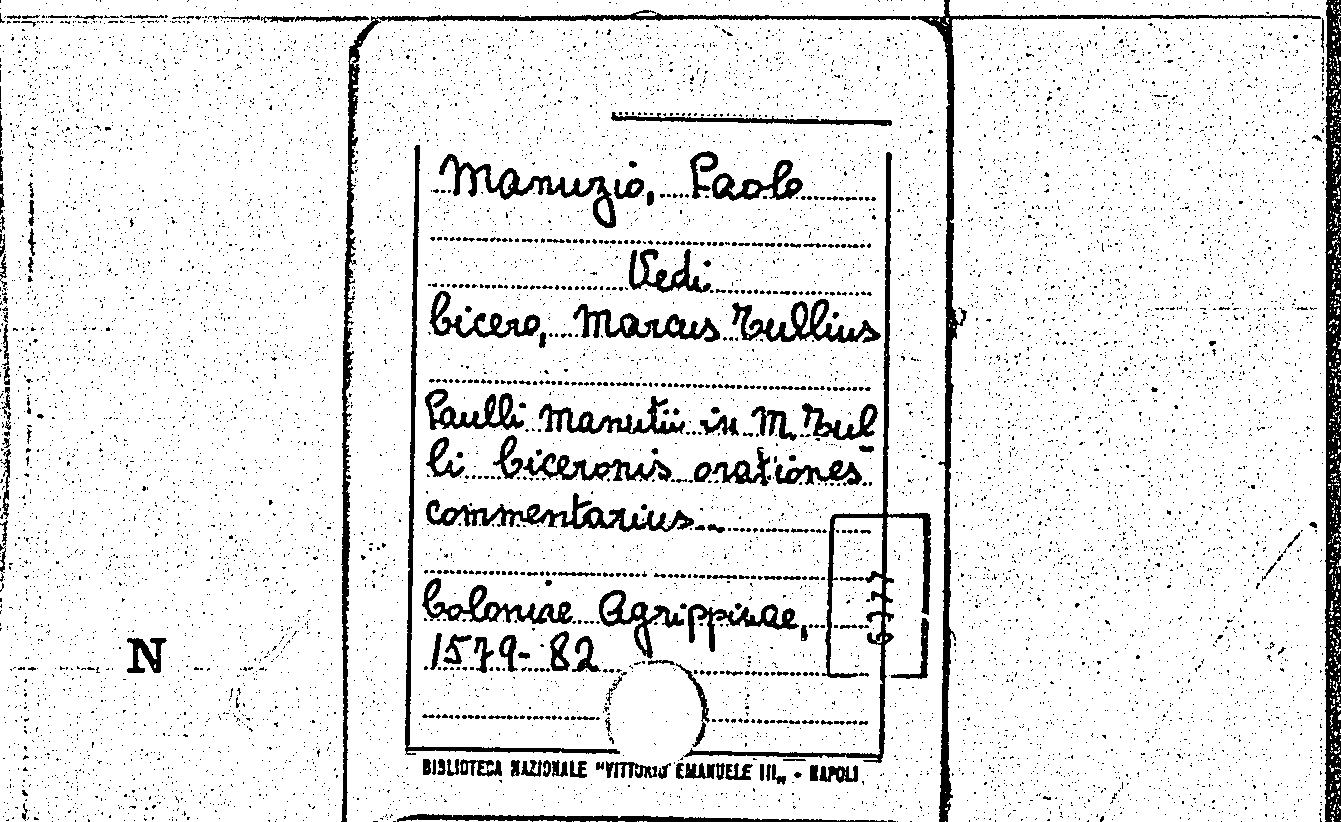 Manuzio, Paolo
Vedi
Cicero, Marcus Tullius
Paulli Manutii in M. Tul-
li Ciceronis orationes
commentarius...
Coloniae Agrippinae,
1579-82
6377
N
BIBLIOTECA NAZIONALE "VITTORIO EMANUELE III„ - NAPOLI